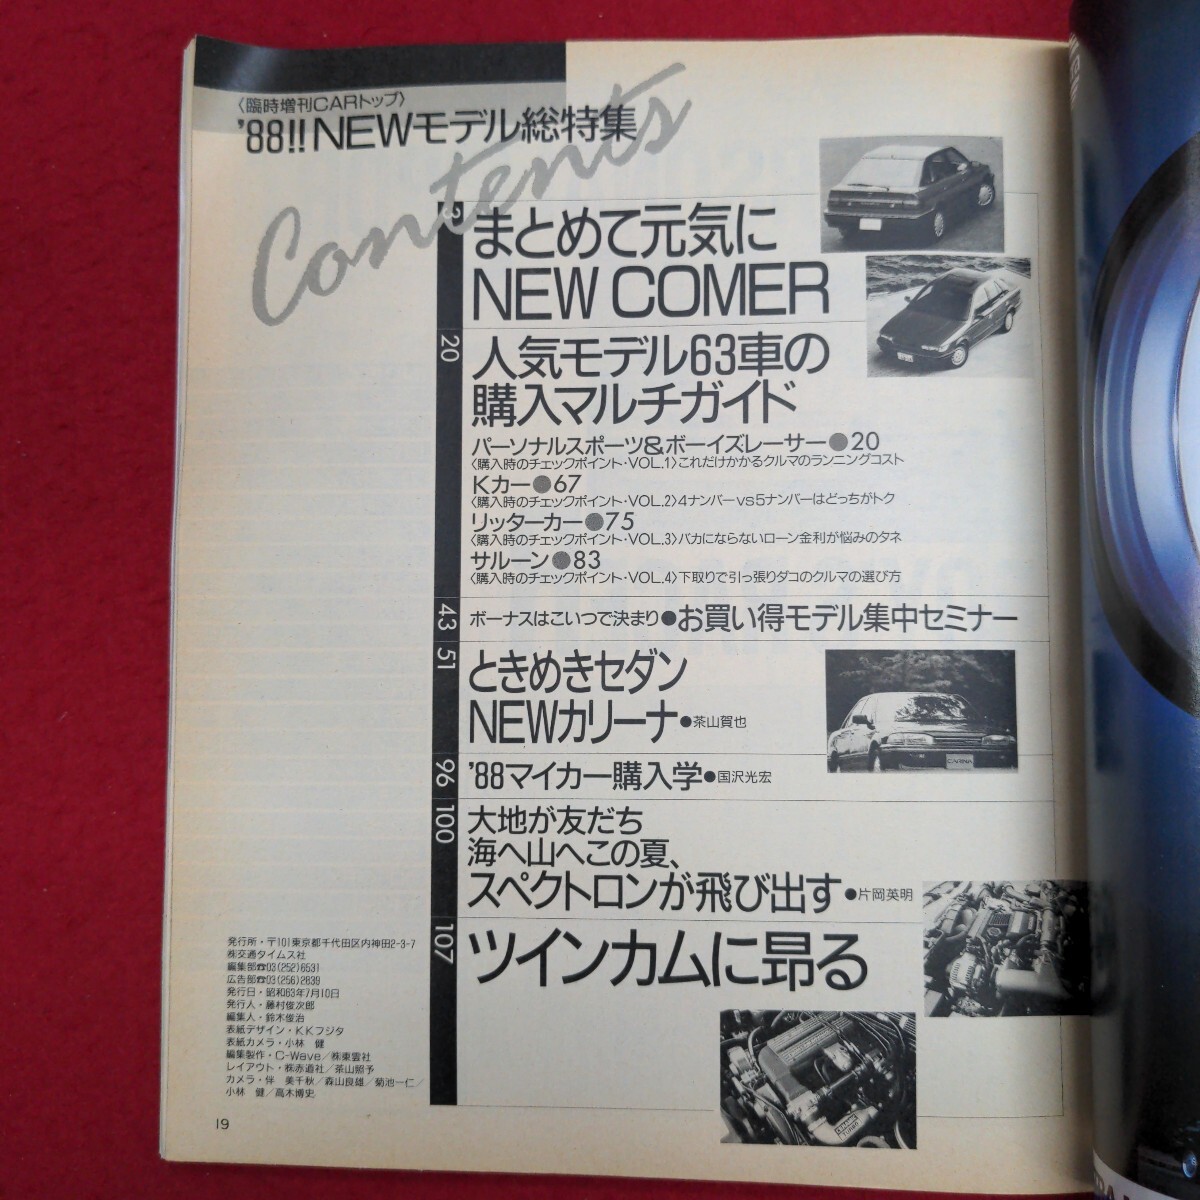 〈臨時増刊CARトップ〉
'88!!NEWモデル総特集
Contents
3
まとめて元気に
NEW COMER
20
人気モデル63車の
購入マルチガイド
パーソナルスポーツ&ボーイズレーサー●20
〈購入時のチェックポイント・VOL.1〉これだけかかるクルマのランニングコスト
Kカー●67
〈購入時のチェックポイント・VOL.2〉4ナンバーvs5ナンバーはどっちがトク
リッターカー●75
〈購入時のチェックポイント・VOL.3〉バカにならないローン金利が悩みのタネ
サルーン●83
〈購入時のチェックポイント・VOL.4〉下取りで引っ張りダコのクルマの選び方
43
ボーナスはこいつで決まり●お買い得モデル集中セミナー
51
ときめきセダン
NEWカリーナ●茶山賀也
CARINA
96
'88マイカー購入学●国沢光宏
100
大地が友だち
海へ山へこの夏、
スペクトロンが飛び出す●片岡英明
107
ツインカムに昂る
発行所・〒101東京都千代田区内神田2-3-7
㈱交通タイムス社
編集部☎03(252)6531
広告部☎03(256)2839
発行日・昭和63年7月10日
発行人・藤村俊次郎
編集人・鈴木俊治
表紙デザイン・KKフジタ
表紙カメラ・小林 健
編集製作・C-Wave/㈱東雲社
レイアウト・㈱赤道社/茶山照予
カメラ・伴 美千秋/森山良雄/菊池一仁/
小林 健/高木博史
19